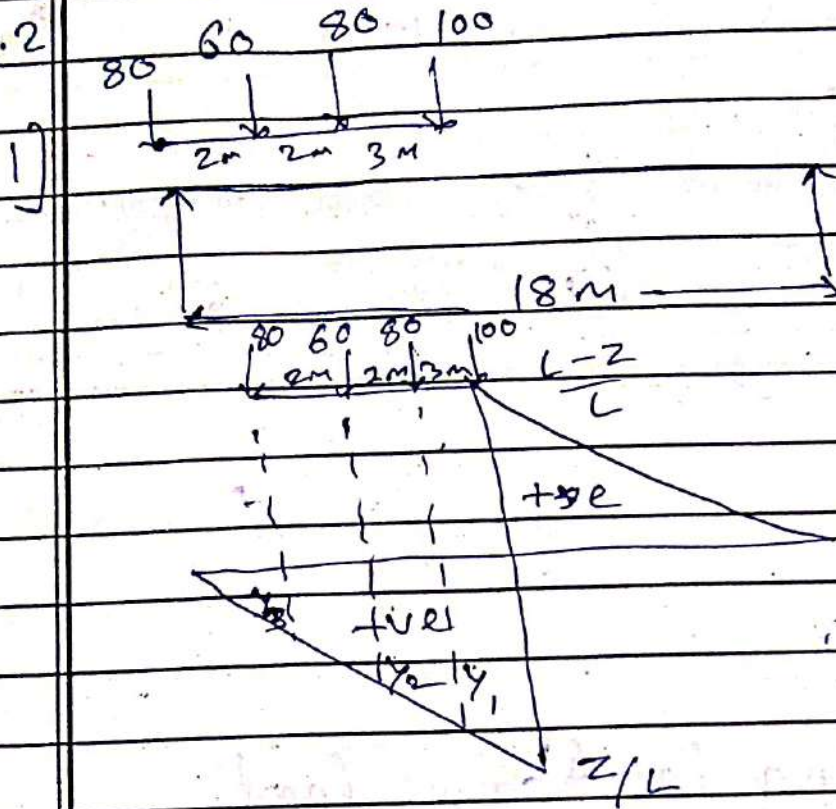 .2
80 60 80 100
1]
2m 2m 3m
18 m
80 60 80 100
2m 2m 3m
L-Z
L
+ve
y3 +ve
y2 y1
Z/L